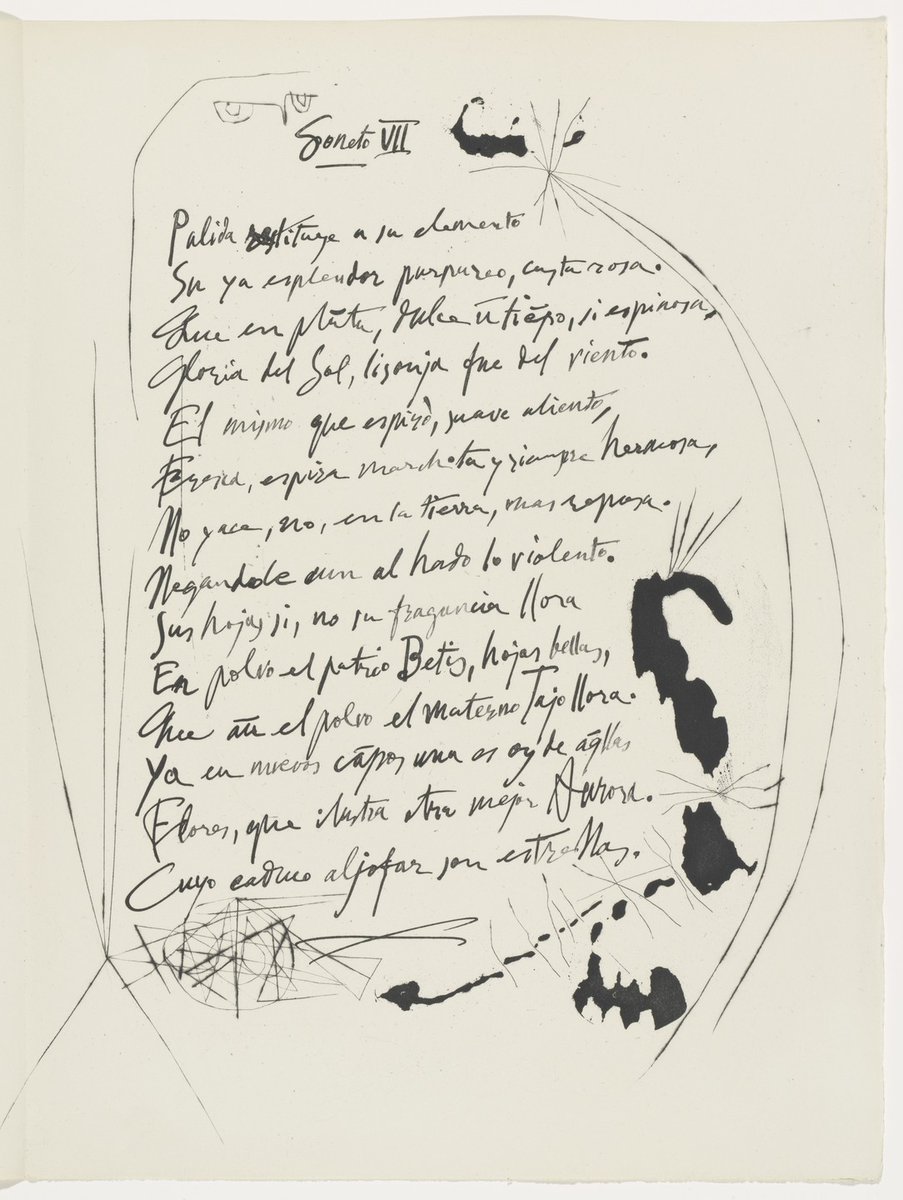 Soneto VII
Palida restituye a su elemento
Su ya esplendor purpureo, casta rosa.
Que en plāta, dulce ū tiēpo, si espinosa,
Gloria del Sol, lisonja fue del viento.
El mismo que espirò, suave aliento,
Fresca, espira marchita y siempre hermosa,
No yace, no, en la tierra, mas reposa.
Negandole aun al hado lo violento.
Sus hojas si, no su fragancia llora
En polvo el patrio Betis, hojas bellas,
Que aū el polvo el materno Tajo llora.
Ya en nuevos cāpos una es oy de āqllas
Flores, que ilustra otra mejor Aurora.
Cuyo caduco aljofar son estrellas.